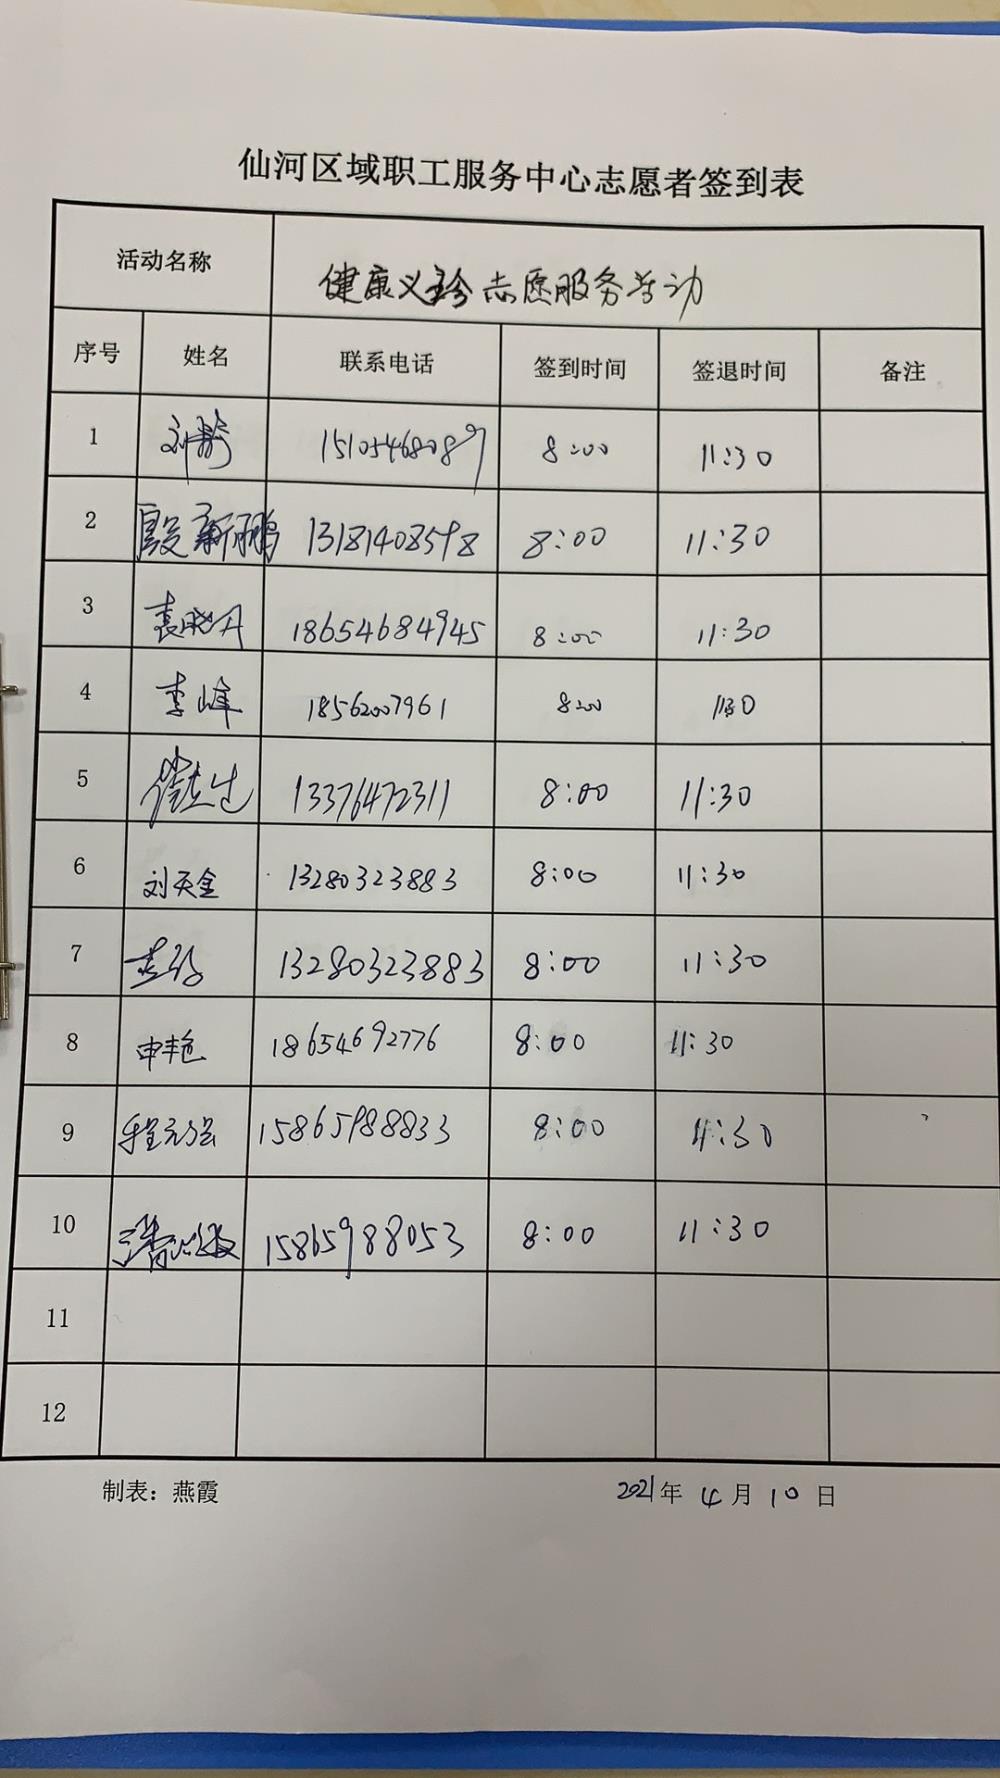 仙河区域职工服务中心志愿者签到表
活动名称 健康义诊志愿服务活动
序号 姓名 联系电话 签到时间 签退时间 备注
1 刘 15105468089 8:00 11:30
2 殷新鹏 13181408598 8:00 11:30
3 袁晓丹 18654684945 8:00 11:30
4 李峰 18562007961 8:00 1130
5 13376472311 8:00 11:30
6 刘天金 13280323883 8:00 11:30
7 13280323883 8:00 11:30
8 申丰艳 18654692776 8:00 11:30
9 程元强 15865988833 8:00 11:30
10 15865988053 8:00 11:30
11
12
制表：燕霞 2021年 4月 10日